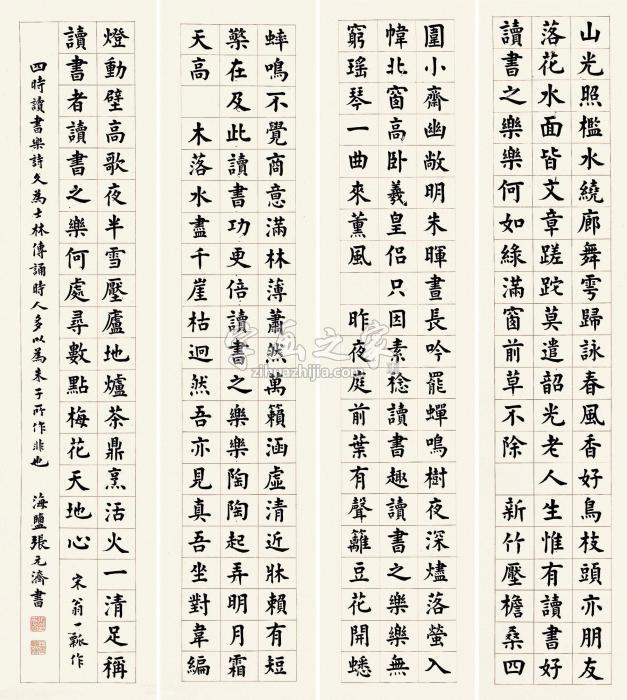 山光照檻水繞廊舞雩歸詠春風香好鳥枝頭亦朋友
落花水面皆文章蹉跎莫遣韶光老人生惟有讀書好
讀書之樂樂何如綠滿窗前草不除 新竹壓檐桑四
圍小齋幽敞明朱暉晝長吟罷蟬鳴樹夜深燼落螢入
幃北窗高卧羲皇侶只因素稔讀書趣讀書之樂樂無
窮瑤琴一曲來薰風 昨夜庭前葉有聲籬豆花開蟋
蟀鳴不覺商意滿林薄蕭然萬籟涵虛清近牀賴有短
檠在及此讀書功更倍讀書之樂樂陶陶起弄明月霜
天高 木落水盡千崖枯迥然吾亦見真吾坐對韋編
燈動壁高歌夜半雪壓廬地爐茶鼎烹活火一清足稱
讀書者讀書之樂何處尋數點梅花天地心 宋翁一瓢作
四時讀書樂詩久為士林傳誦時人多以為朱子所作非也 海鹽張元濟書
字画之家
zihuazhijia.com